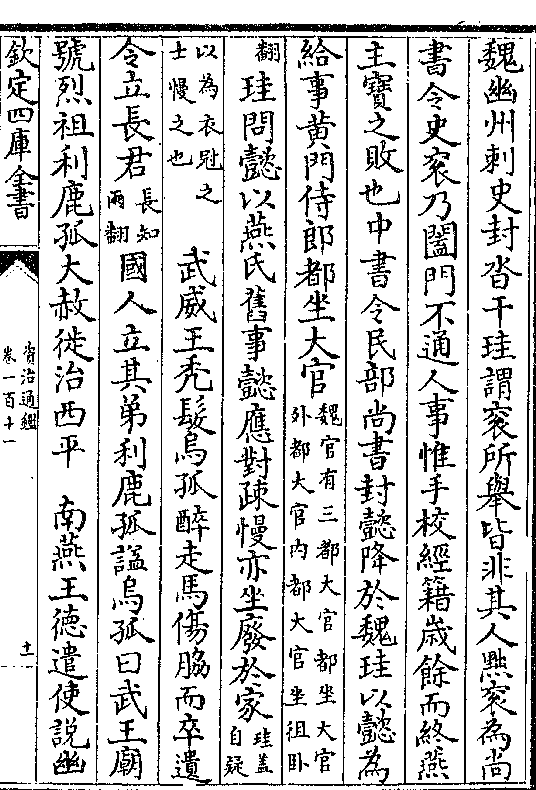 魏幽州刺史封沓干珪謂衮所舉皆非其人黜衮為尚
書令史衮乃闔門不通人事惟手校經籍歳餘而終燕
主寶之敗也中書令民部尚書封懿降於魏珪以懿為
給事黄門侍郎都坐大官魏官有三都大官都坐大官
外都大官内都大官坐徂卧
翻珪問懿以燕氏舊事懿應對疎慢亦坐廢於家珪盖
自疑
以為衣冠之
士慢之也武威王禿髮烏孤醉走馬傷脇而卒遺
令立長君長知
兩翻國人立其弟利鹿孤諡烏孤曰武王廟
號烈祖利鹿孤大赦徙治西平 南燕王德遣使説幽
欽定四庫全書
資治通鑑
卷一百十一
十一